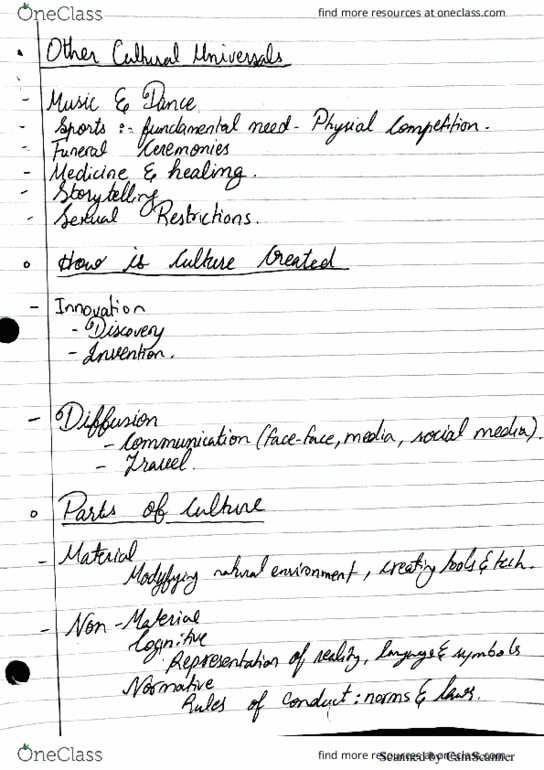 OneClass
find more resources at oneclass.com
Other Cultural Universals
- Music & Dance
- Sports :- fundamental need - Physial Competition.
- Funeral Ceremonies
- Medicine & healing.
- Storytelling
- Sexual Restrictions.
How is Culture Created
- Innovation
- Discovery
- Invention.
- Diffusion
- Communication (face-face, media, social media).
- Travel.
Parts of Culture
- Material
Modyfying natural environment, creating tools & tech.
- Non-Material
Cognitive
Representation of reality, language & symbols
Normative
Rules of conduct: norms & laws.
OneClass
find more resources at oneclass.com
Scanned by CamScanner